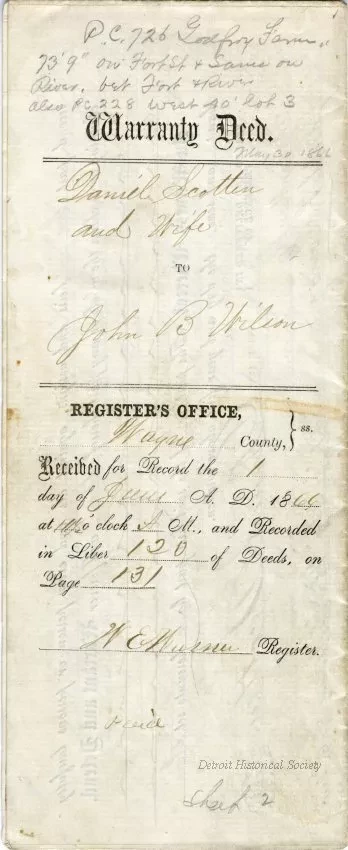 P.C. 726 Godfroy Farm,
73'9" on Fort St & Same on
River, bet Fort & River
also P.C. 228 West 40' lot 3
Warranty Deed.
May 30 1866
Daniel Scotten
and Wife
TO
John B Wilson
REGISTER'S OFFICE,
Wayne County, } ss.
Received for Record the 1
day of June A. D. 1866
at o'clock M., and Recorded
in Liber 120 of Deeds, on
Page 131
W E Warner Register.
Detroit Historical Society
2